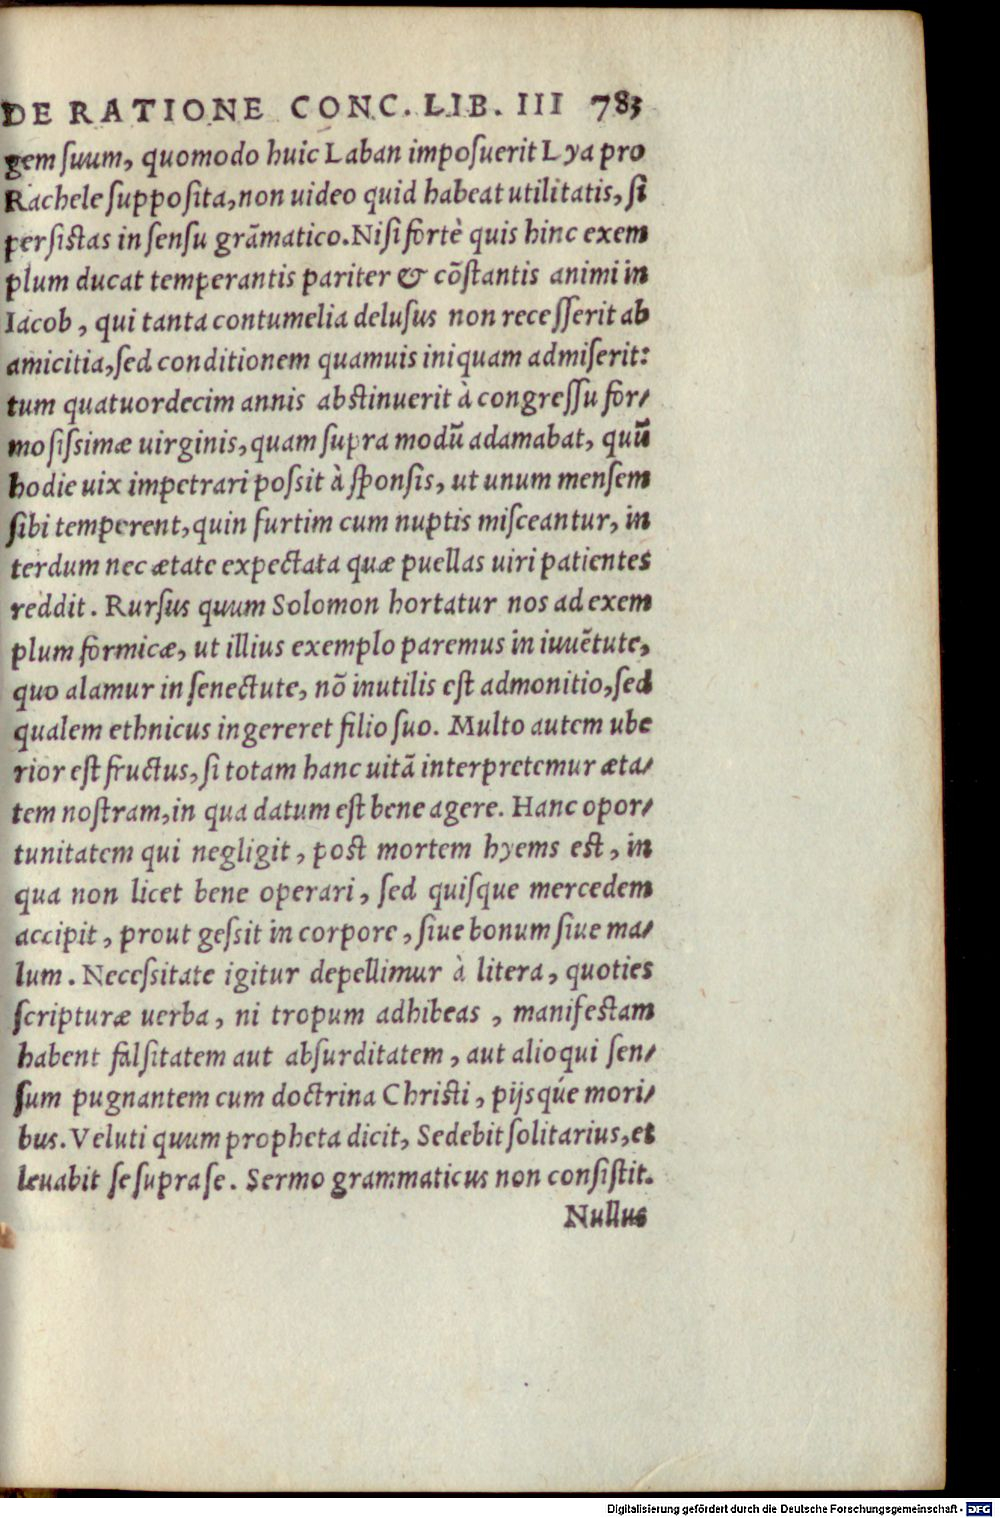 DE RATIONE CONC. LIB. III 783
gem suum, quomodo huic Laban imposuerit Lya pro
Rachele supposita, non uideo quid habeat utilitatis, si
persistas in sensu grāmatico. Nisi fortè quis hinc exem
plum ducat temperantis pariter & cōstantis animi in
Iacob, qui tanta contumelia delusus non recesserit ab
amicitia, sed conditionem quamuis iniquam admiserit:
tum quatuordecim annis abstinuerit à congressu for/
mosissimæ uirginis, quam supra modū adamabat, quū
hodie uix impetrari possit à sponsis, ut unum mensem
sibi temperent, quin furtim cum nuptis misceantur, in
terdum nec ætate expectata quæ puellas uiri patientes
reddit. Rursus quum Solomon hortatur nos ad exem
plum formicæ, ut illius exemplo paremus in iuuētute,
quo alamur in senectute, nō inutilis est admonitio, sed
qualem ethnicus ingereret filio suo. Multo autem ube
rior est fructus, si totam hanc uitā interpretemur æta/
tem nostram, in qua datum est bene agere. Hanc opor/
tunitatem qui negligit, post mortem hyems est, in
qua non licet bene operari, sed quisque mercedem
accipit, prout gessit in corpore, siue bonum siue ma/
lum. Necessitate igitur depellimur à litera, quoties
scripturæ uerba, ni tropum adhibeas, manifestam
habent falsitatem aut absurditatem, aut alioqui sen/
sum pugnantem cum doctrina Christi, pijsqúe mori/
bus. Veluti quum propheta dicit, Sedebit solitarius, et
leuabit se supra se. Sermo grammaticus non consistit.
Nullus
Digitalisierung gefördert durch die Deutsche Forschungsgemeinschaft - DFG